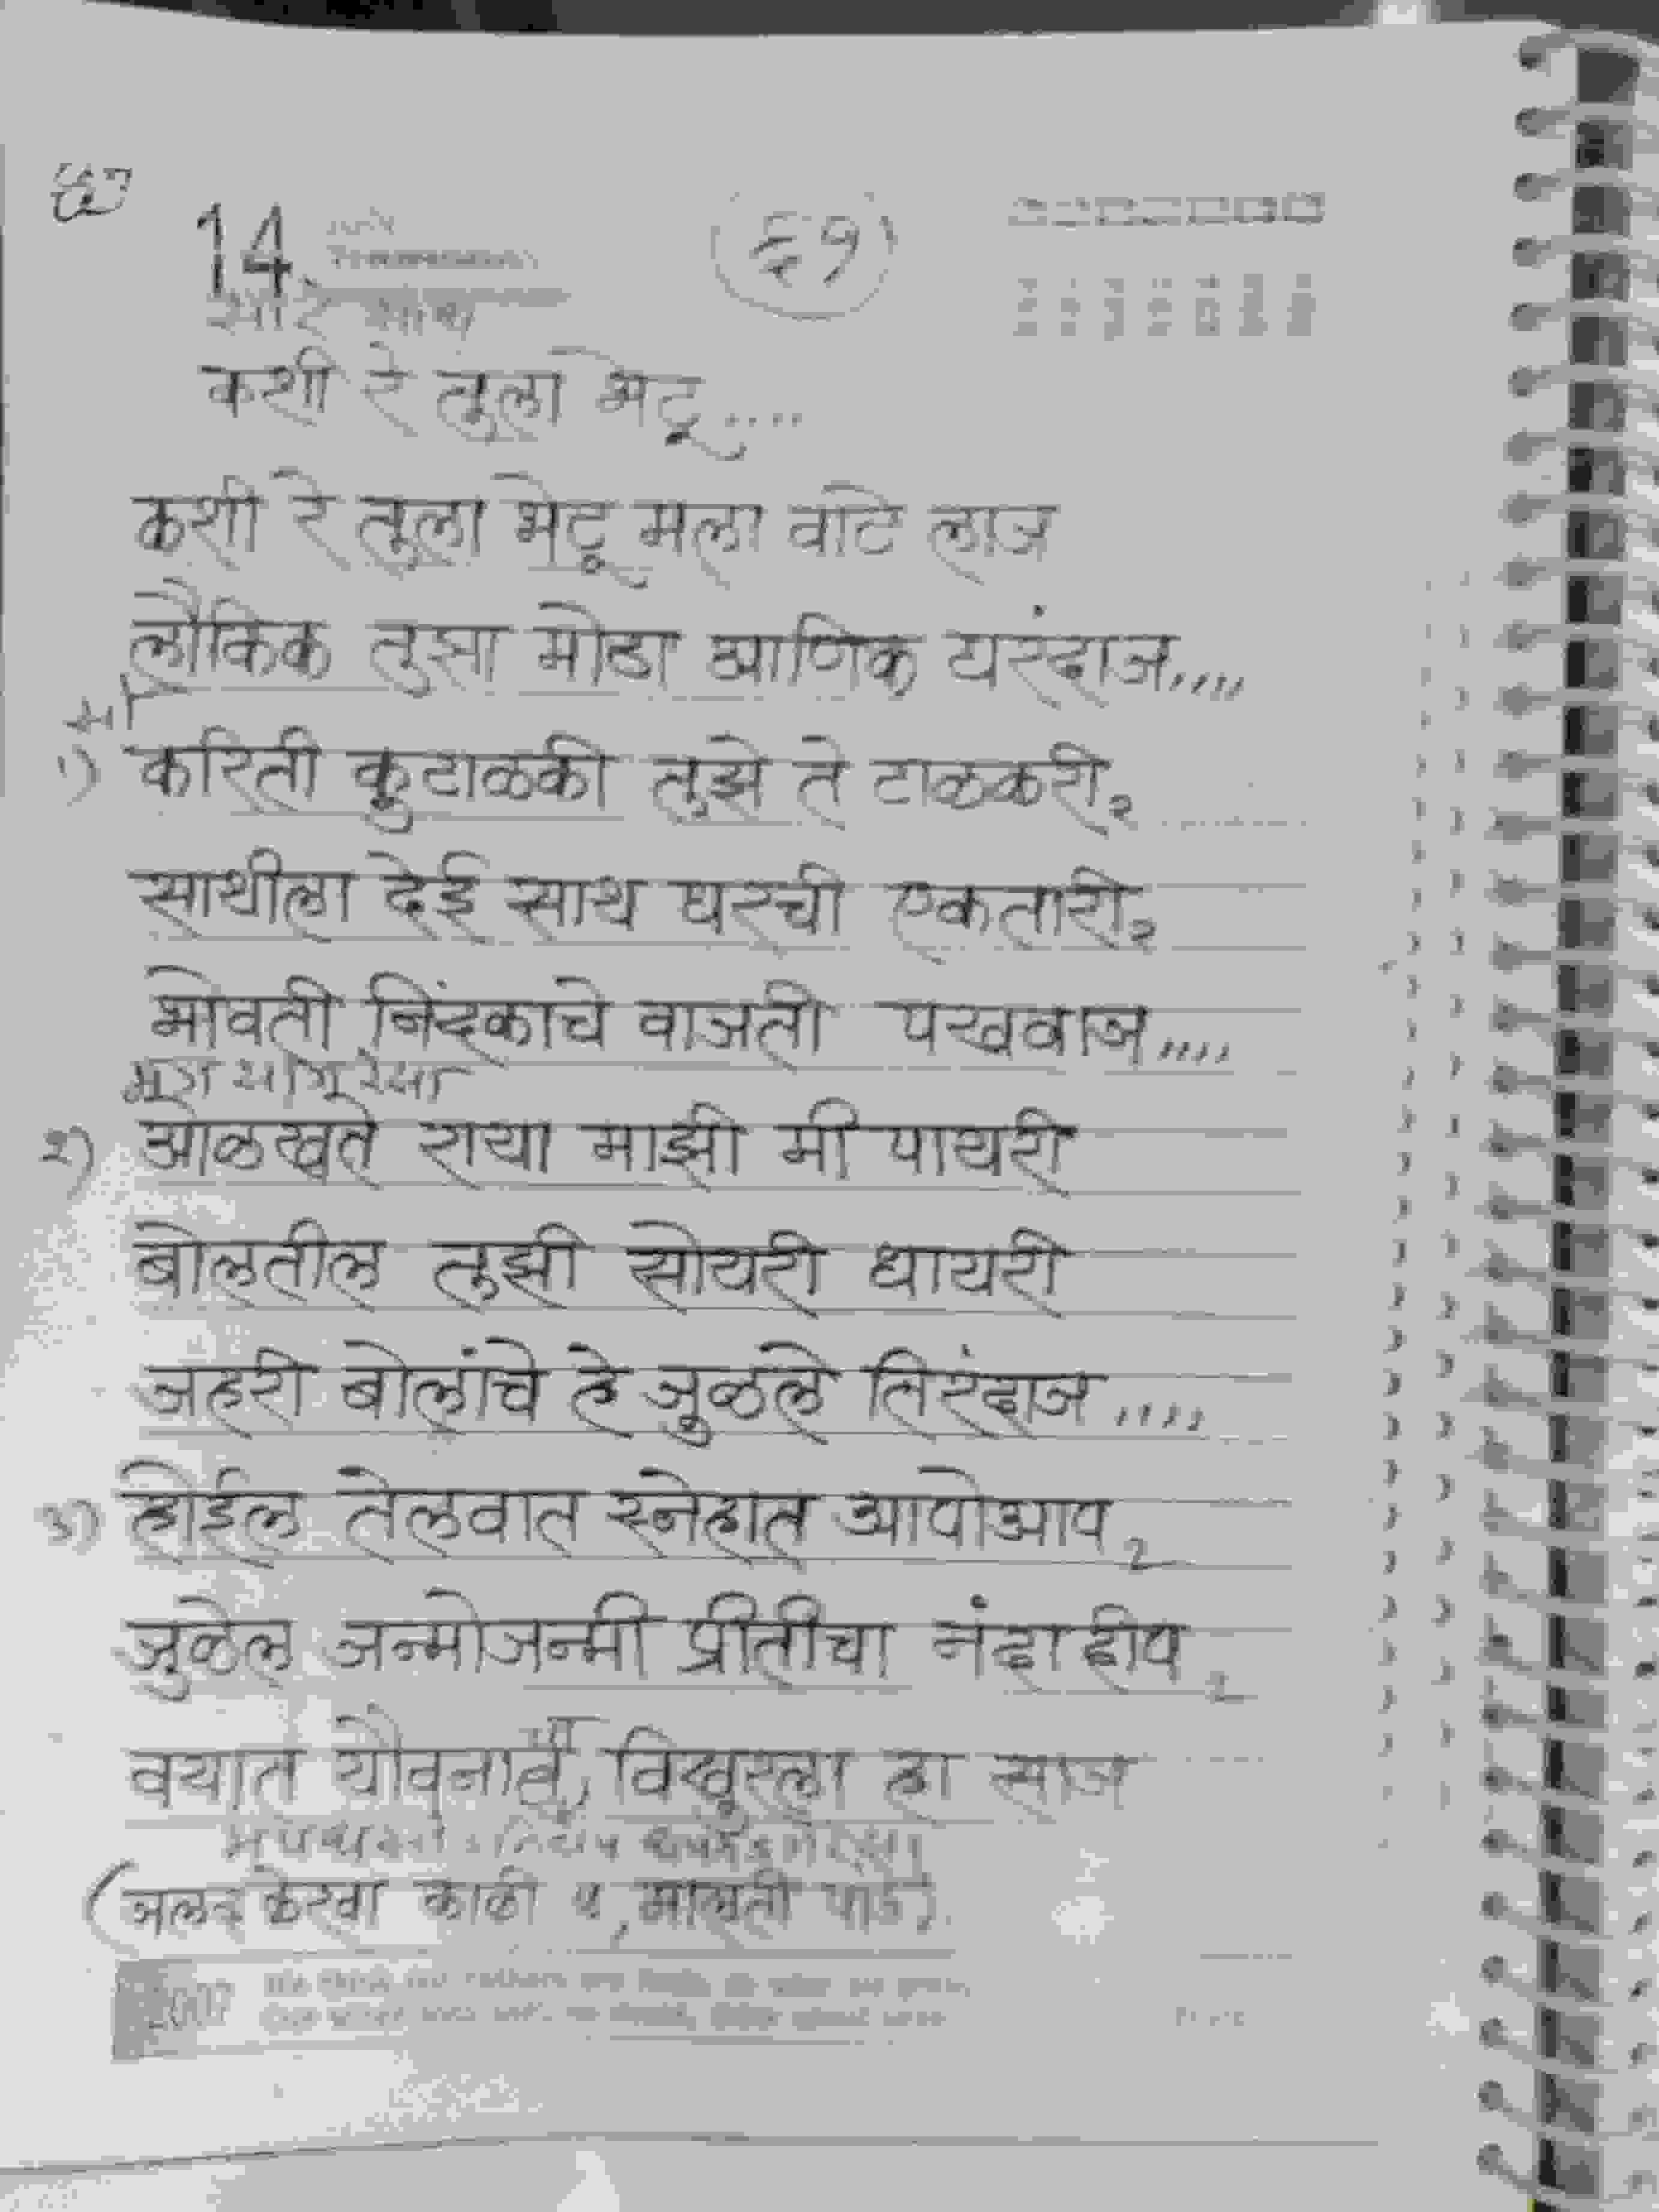 14
६९
कशी रे तुला भेटू....
कशी रे तुला भेटू मला वाटे लाज
लौकिक तुझा मोठा आणिक घरंदाज,,,,
१) करिती कुटाळकी तुझे ते टाळकरी२
साथीला देई साथ घरची एकतारी२
भोवती निंदकाचे वाजती पखवाज,,,,
२) ओळखते राया माझी मी पायरी
बोलतील तुझी सोयरी धायरी
जहरी बोलांचे हे जुळले तिरंदाज,,,,
३) होईल तेलवात स्नेहात आपोआप २
जुळेल जन्मोजन्मी प्रीतीचा नंदादीप २
वयात यौवनाचे, विखुरला हा साज
काळी ५,
2007